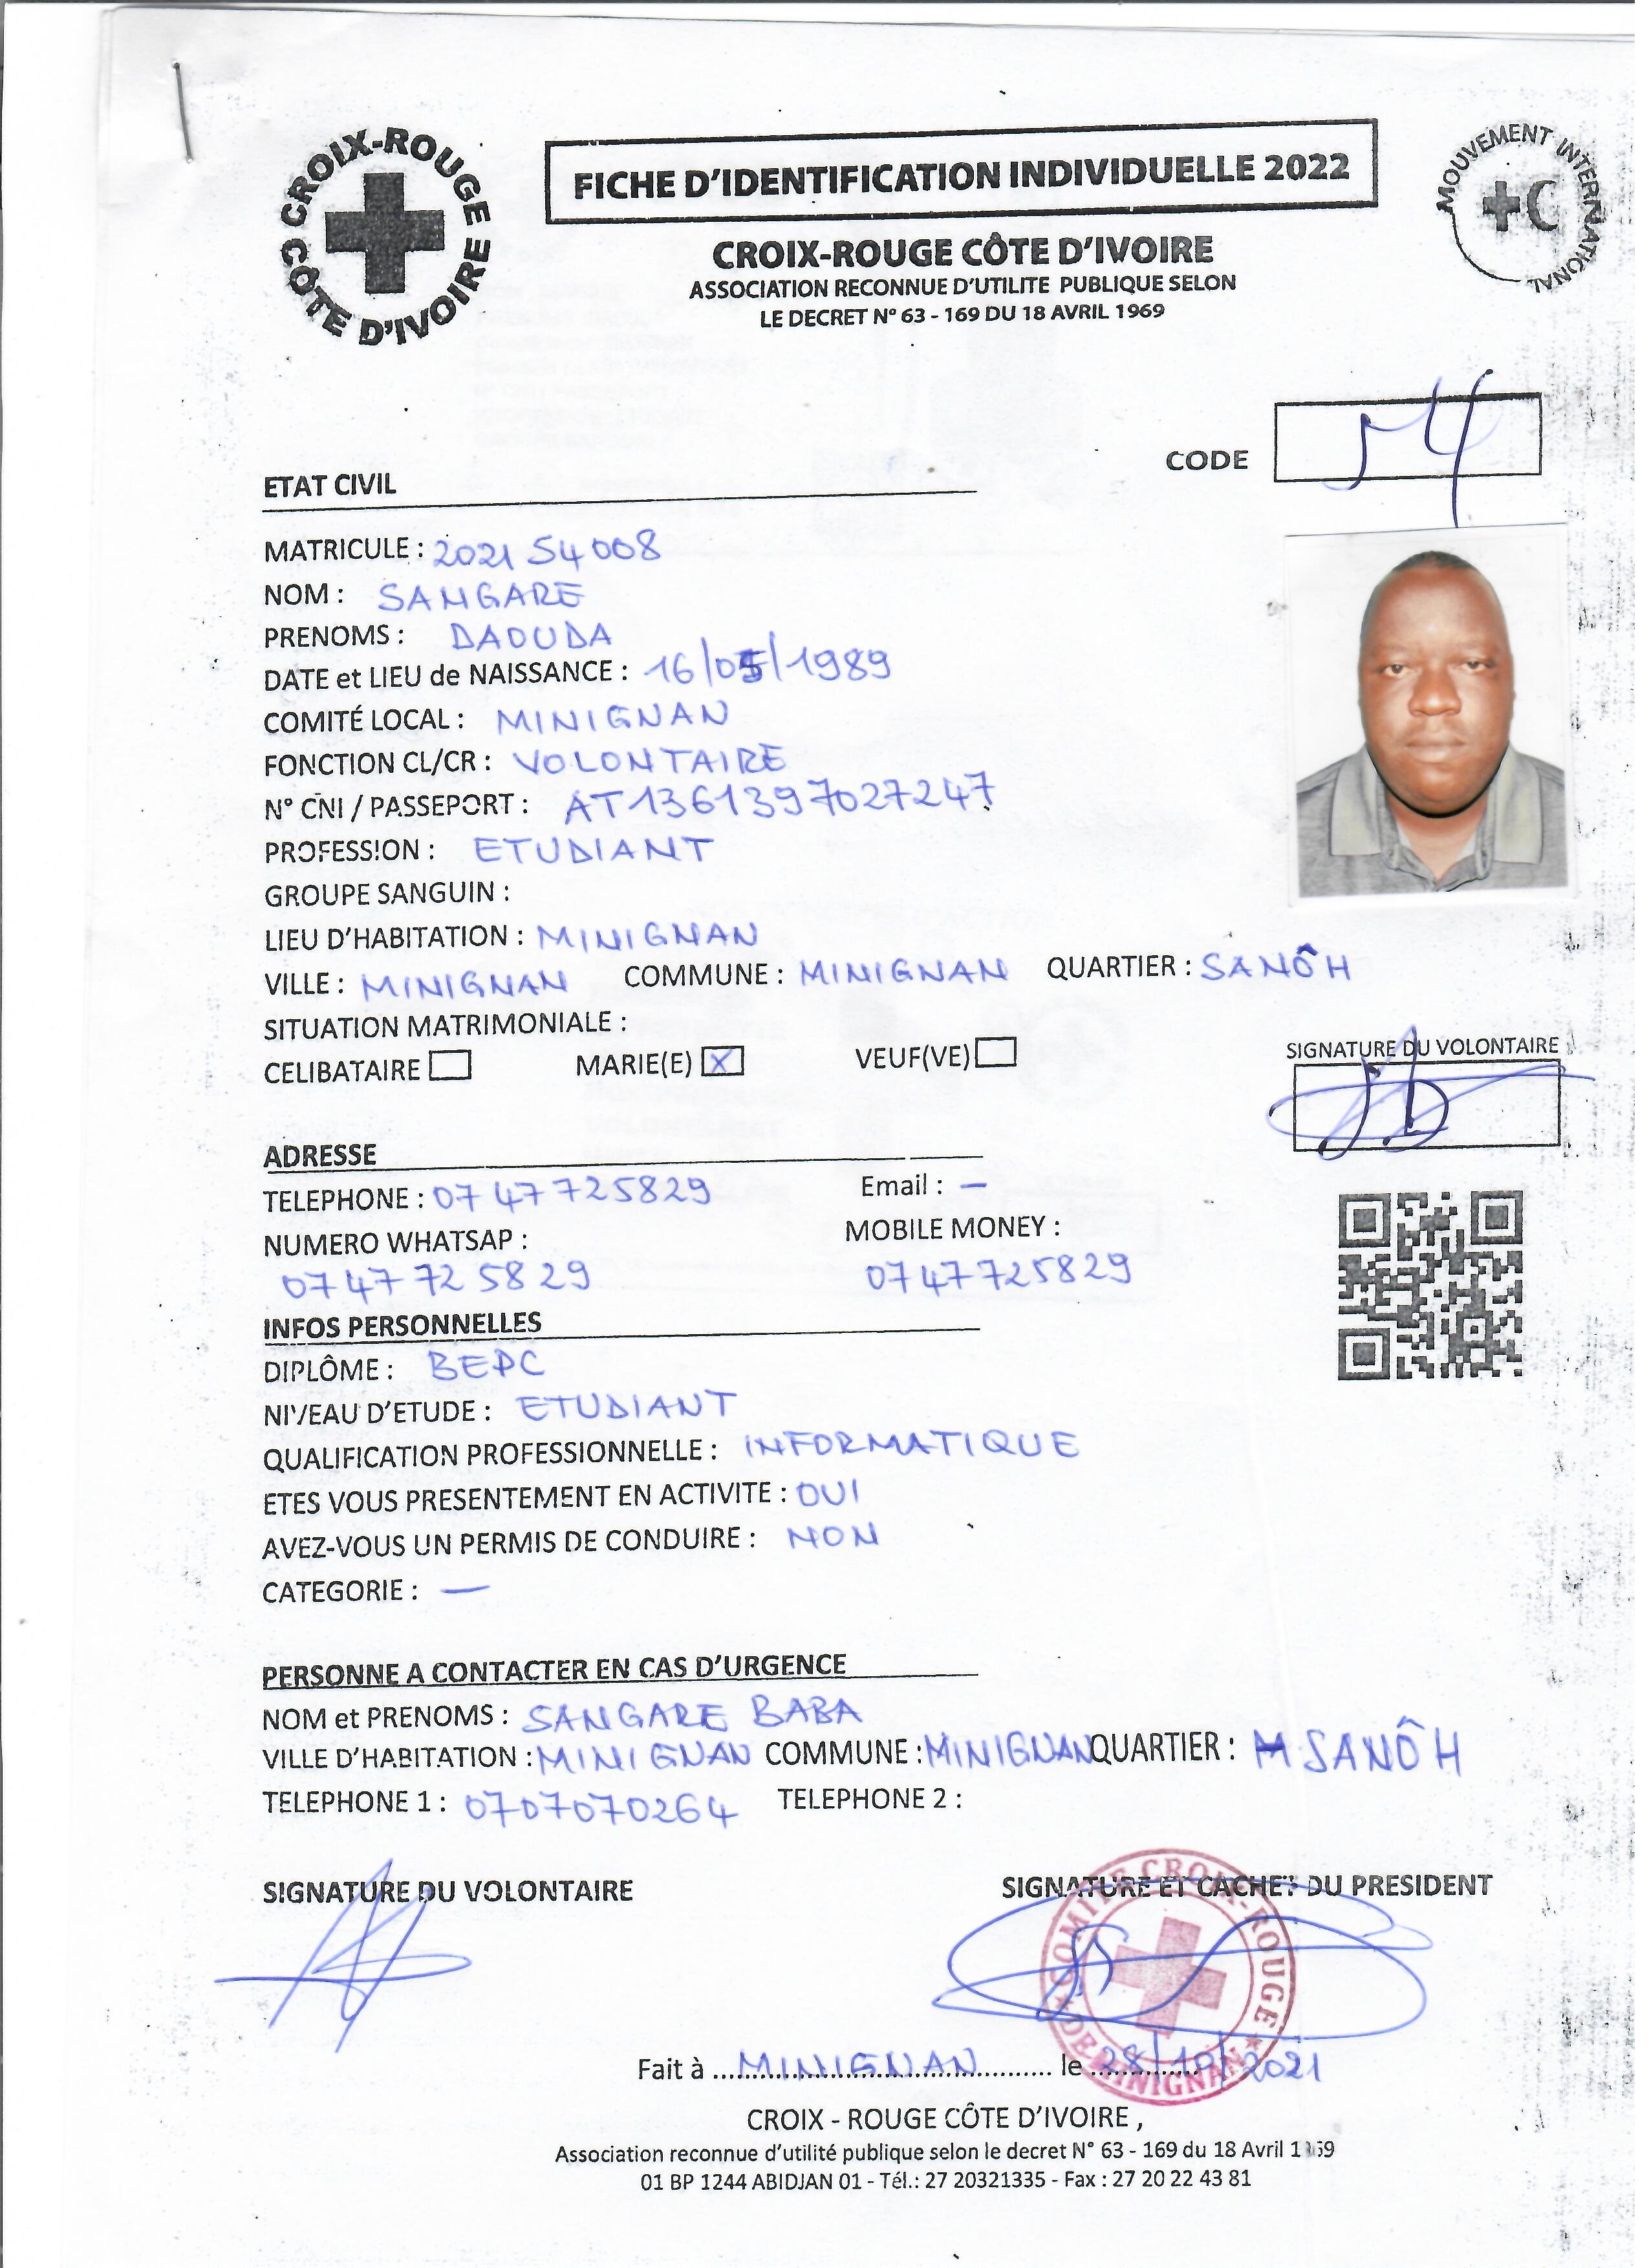 CROIX-ROUGE CÔTE D'IVOIRE
FICHE D'IDENTIFICATION INDIVIDUELLE 2022
MOUVEMENT INTERNATIONAL
CROIX-ROUGE CÔTE D'IVOIRE
ASSOCIATION RECONNUE D'UTILITE PUBLIQUE SELON
LE DECRET N° 63 - 169 DU 18 AVRIL 1969
CODE 54
ETAT CIVIL
MATRICULE : 202154008
NOM : SANGARE
PRENOMS : DAOUDA
DATE et LIEU de NAISSANCE : 16/05/1989
COMITÉ LOCAL : MINIGNAN
FONCTION CL/CR : VOLONTAIRE
N° CNI / PASSEPORT : AT1361397027247
PROFESSION : ETUDIANT
GROUPE SANGUIN :
LIEU D'HABITATION : MINIGNAN
VILLE : MINIGNAN COMMUNE : MINIGNAN QUARTIER : SANÔH
SITUATION MATRIMONIALE :
CELIBATAIRE MARIE(E) X VEUF(VE)
SIGNATURE DU VOLONTAIRE
ADRESSE
TELEPHONE : 0747725829 Email : —
NUMERO WHATSAP : MOBILE MONEY :
07 47 72 58 29 0747725829
INFOS PERSONNELLES
DIPLÔME : BEPC
NIVEAU D'ETUDE : ETUDIANT
QUALIFICATION PROFESSIONNELLE : INFORMATIQUE
ETES VOUS PRESENTEMENT EN ACTIVITE : OUI
AVEZ-VOUS UN PERMIS DE CONDUIRE : NON
CATEGORIE : —
PERSONNE A CONTACTER EN CAS D'URGENCE
NOM et PRENOMS : SANGARE BABA
VILLE D'HABITATION : MINIGNAN COMMUNE : MINIGNAN QUARTIER : SANÔH
TELEPHONE 1 : 0707070264 TELEPHONE 2 :
SIGNATURE DU VOLONTAIRE SIGNATURE ET CACHET DU PRESIDENT
COMITE CROIX-ROUGE DE MINIGNAN
Fait à MINIGNAN le 28/10/2021
CROIX - ROUGE CÔTE D'IVOIRE ,
Association reconnue d'utilité publique selon le decret N° 63 - 169 du 18 Avril 1969
01 BP 1244 ABIDJAN 01 - Tél.: 27 20321335 - Fax : 27 20 22 43 81